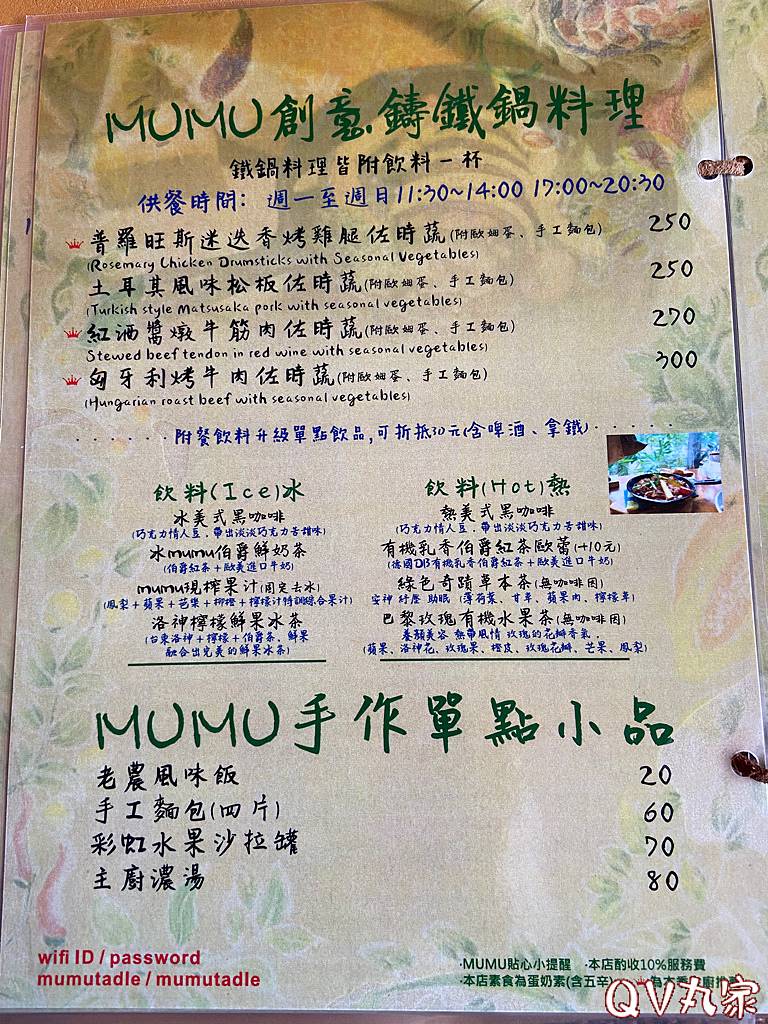 MUMU創意鑄鐵鍋料理
鐵鍋料理皆附飲料一杯
供餐時間: 週一至週日11:30~14:00 17:00~20:30
普羅旺斯迷迭香烤雞腿佐時蔬(附歐姆蛋、手工麵包) 250
(Rosemary Chicken Drumsticks with Seasonal Vegetables)
土耳其風味松板佐時蔬(附歐姆蛋、手工麵包) 250
(Turkish style Matsusaka pork with seasonal vegetables)
紅酒醬燉牛筋肉佐時蔬(附歐姆蛋、手工麵包) 270
Stewed beef tendon in red wine with seasonal vegetables)
匈牙利烤牛肉佐時蔬(附歐姆蛋、手工麵包) 300
(Hungarian roast beef with seasonal vegetables)
附餐飲料升級單點飲品,可折抵30元(含啤酒、拿鐵)
飲料(Ice)冰
冰美式黑咖啡
(巧克力情人豆,帶出淡淡巧克力苦甜味)
冰mumu伯爵鮮奶茶
(伯爵紅茶+歐美進口牛奶)
mumu現榨果汁(固定去冰)
(鳳梨+蘋果+芭樂+柳橙+檸檬汁特調綜合果汁)
洛神檸檬鮮果冰茶
(台東洛神+檸檬+伯爵茶、鮮果
融合出完美的鮮果冰茶)
飲料(Hot)熱
熱美式黑咖啡
(巧克力情人豆,帶出淡淡巧克力苦甜味)
有機乳香伯爵紅茶歐蕾(+10元)
(德國DB有機乳香伯爵紅茶+歐美進口牛奶)
綠色奇蹟草本茶(無咖啡因)
安神 紓壓 助眠 (薄荷葉、甘草、蘋果肉、檸檬草)
巴黎玫瑰有機水果茶(無咖啡因)
養顏美容 熱帶風情 玫瑰的花瓣香氣,
(蘋果、洛神花、玫瑰果、橙皮、玫瑰花瓣、芒果、鳳梨)
MUMU手作單點小品
老農風味飯 20
手工麵包(四片) 60
彩虹水果沙拉罐 70
主廚濃湯 80
wifi ID / password
mumutadle / mumutadle
·MUMU貼心小提醒 ·本店酌收10%服務費
·本店素食為蛋奶素(含五辛)
QV丸家